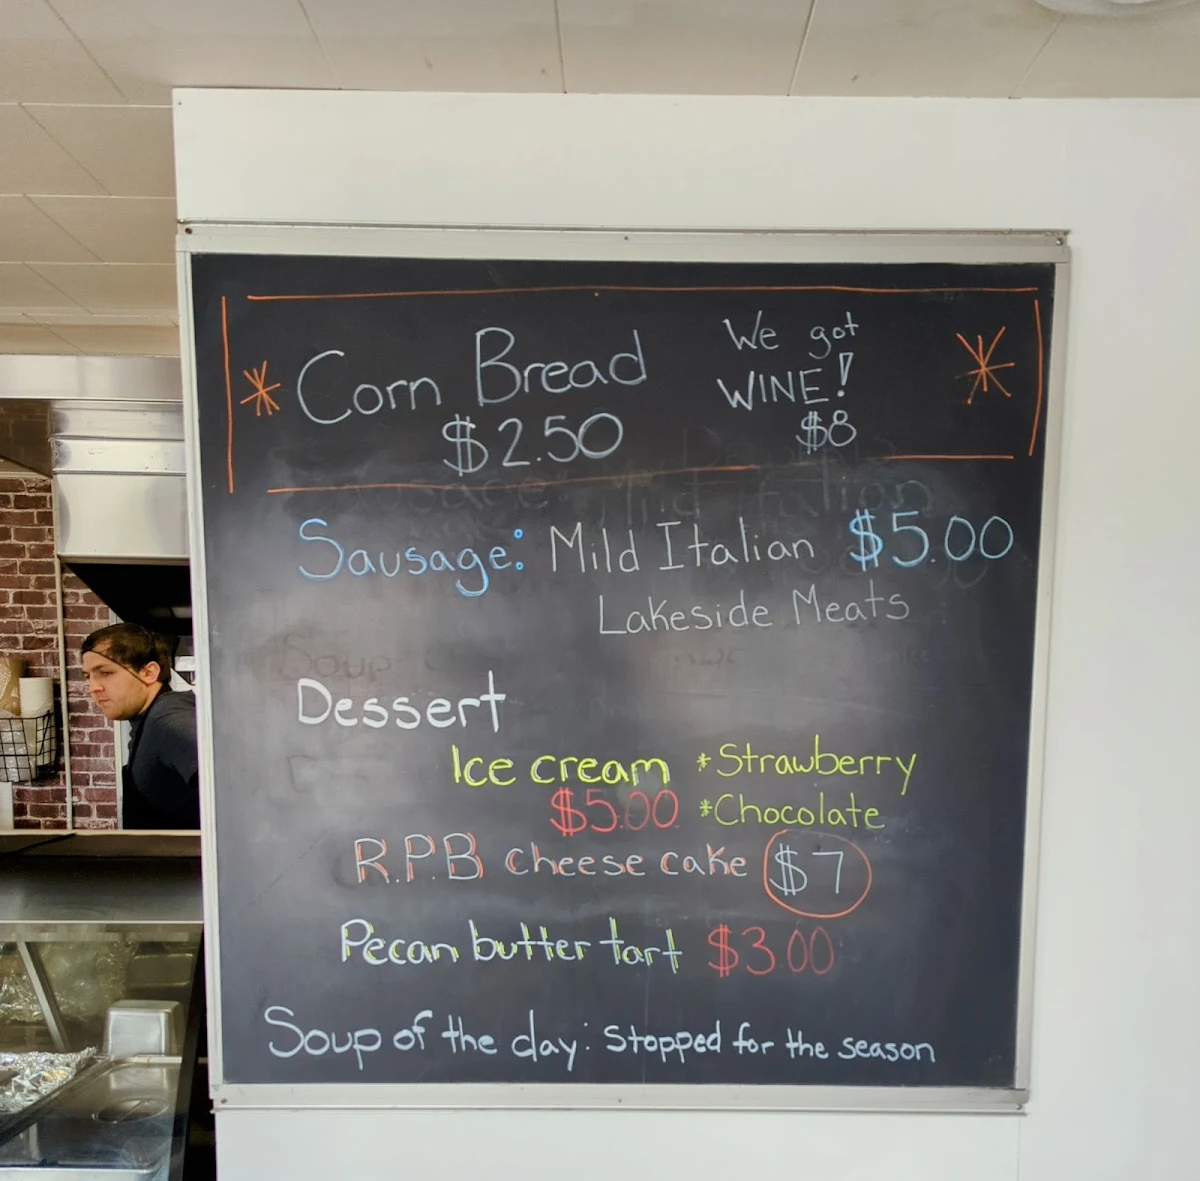 * Corn Bread
$2.50
We got
WINE!
$8
*
Sausage: Mild Italian $5.00
Lakeside Meats
Dessert
Ice cream *Strawberry
$5.00 *Chocolate
R.P.B cheese cake $7
Pecan butter tart $3.00
Soup of the day: Stopped for the season